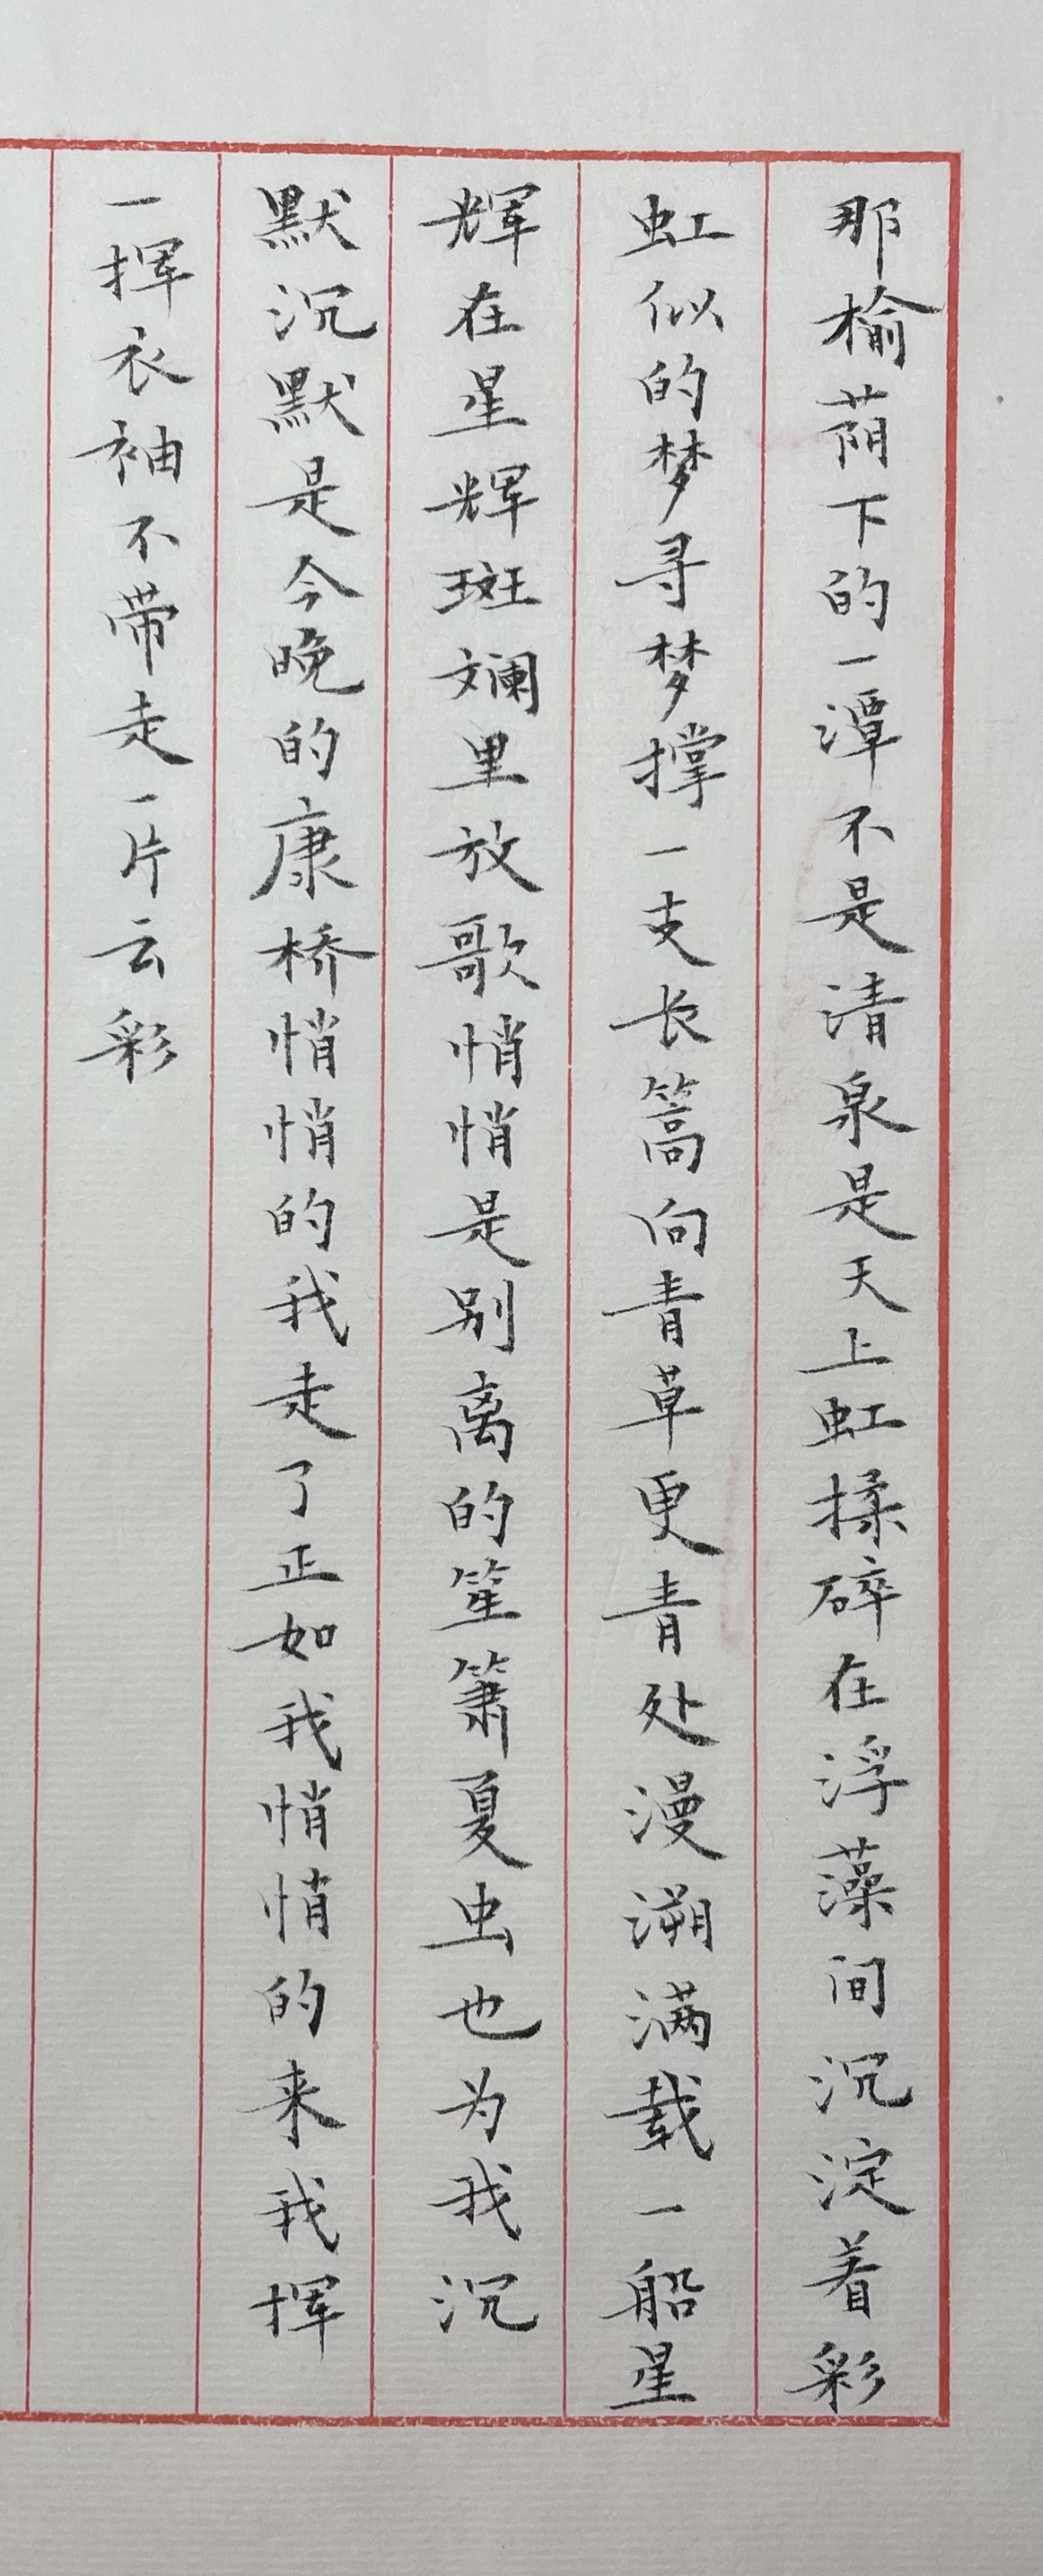 那榆荫下的一潭不是清泉是天上虹揉碎在浮藻间沉淀着彩
虹似的梦寻梦撑一支长篙向青草更青处漫溯满载一船星
辉在星辉斑斓里放歌悄悄是别离的笙箫夏虫也为我沉
默沉默是今晚的康桥悄悄的我走了正如我悄悄的来我挥
一挥衣袖不带走一片云彩